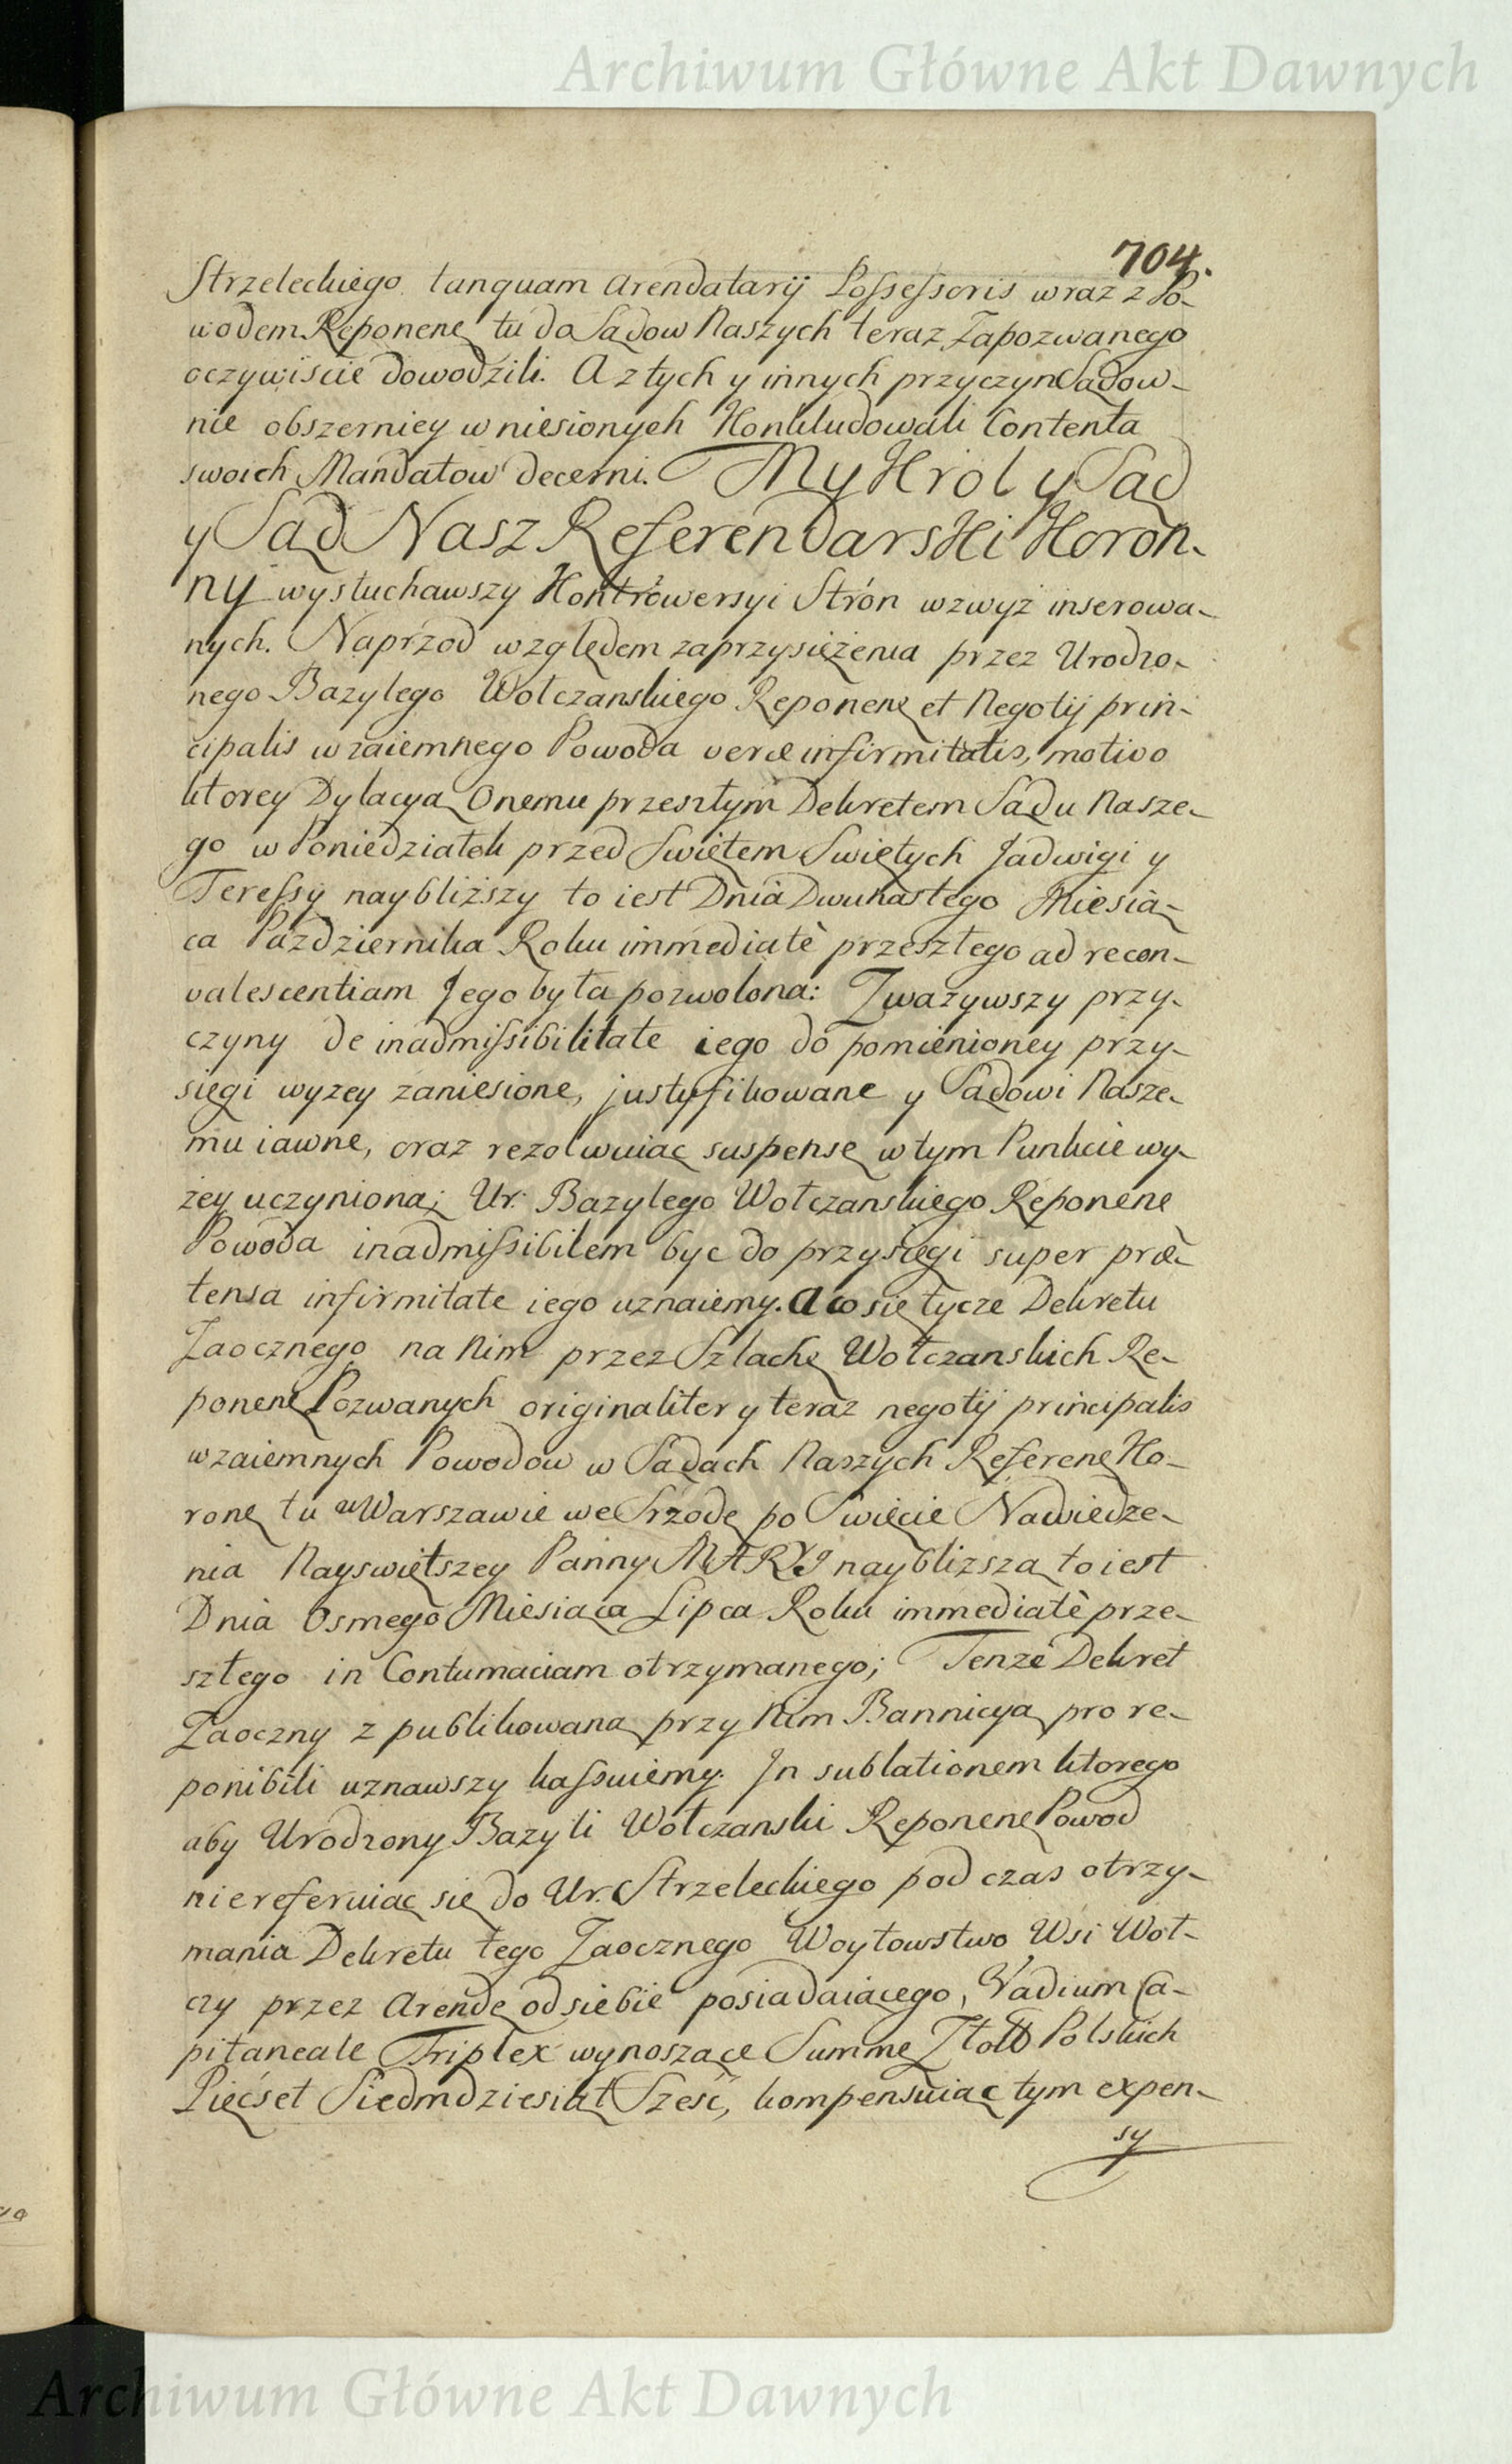 Archiwum Główne Akt Dawnych
704.
Strzeleckiego tanquam Arendatarij Possessoris wraz z Po-
wodem Reponenę tu do Sądow Naszych teraz Zapozwanego
oczywiscie dowodzili. A z tych y innych przyczyn Sądow-
nie obszerniey wniesionych Konkludowali Contenta
swoich Mandatow decerni. My Krol y Sąd
y Sąd Nasz Referendarski Koron-
ny wysłuchawszy Kontrowersyi Strón wzwyż inserowa-
nych. Naprzod względem zaprzysiężenia przez Urodzo-
nego Bazylego Wołczanskiego Reponenę et Negotij prin-
cipalis wzaiemnego Powoda veræ infirmitatis, motivo
ktorey Dylacya Onemu przeszłym Dekretem Sądu Nasze-
go w Poniedziałek przed Swiętem Swiętych Jadwigi y
Teressy naybliższy to iest Dnia Dwunastego Miesią-
ca Pazdziernika Roku immediatè przeszłego ad recon-
valescentiam Jego była pozwolona: Zważywszy przy-
czyny de inadmissibilitate iego do pomienioney przy-
sięgi wyzey zaniesione, justyfikowane y Sądowi Nasze-
mu iawne, oraz rezolwuiąc suspensę w tym Punkcie wy-
żey uczynioną; Ur: Bazylego Wołczanskiego Reponenę
Powoda inadmissibilem byc do przysięgi super præ-
tensa infirmitate iego uznaiemy. A co się tycze Dekretu
Zaocznego na Nim przez Szlachę Wołczanskich Re-
ponenę Pozwanych originaliter y teraz negotij principalis
wzaiemnych Powodow w Sądach Naszych Referenę Ko-
ronę tu w Warszawie we Srzodę po Swięcie Nawiedze-
nia Nayswiętszey Panny MARYI naybliższą to iest
Dnia Osmego Miesiąca Lipca Roku immediatè prze-
szłego in Contumaciam otrzymanego; Tenże Dekret
Zaoczny z publikowaną przy Nim Bannicyą pro re-
ponibili uznawszy kassuiemy. In sublationem ktorego
aby Urodzony Bazyli Wołczanski Reponenę Powod
nie referuiąc się do Ur. Strzeleckiego podczas otrzy-
mania Dekretu tego Zaocznego Woytowstwo Wsi Woł-
czy przez Arendę od siebie posiadaiącego, Vadium Ca-
pitaneale Triplex wynoszące Summę Złott Polskich
Pięćset Siedmdziesiąt Szesć, kompensuiąc tym expen-
sy
Archiwum Główne Akt Dawnych